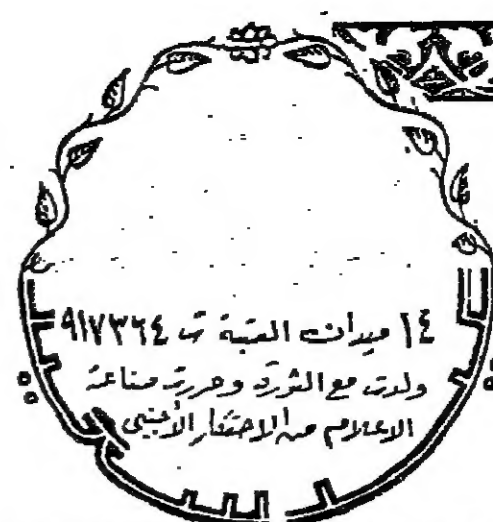 ١٤ ميدان العتبة ت ٩١٧٣٦٤
ولدت مع الثورة وحررت صناعة
الاعلام من الاحتكار الأجنبى